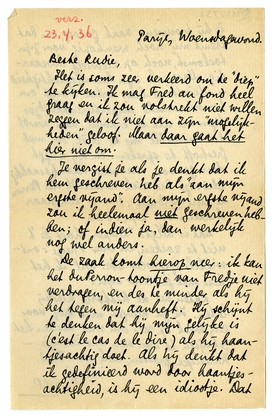 verz.
23.4.36
Parijs, Woensdagavond.
Beste Rudie,
Het is soms zeer verkeerd om de "diep"
te kijken. Ik mag Fred au fond heel
graag en ik zou volstrekt niet willen
zeggen dat ik niet aan zijn "mogelijk-
heden" geloof. Maar daar gaat het
hier niet om.
Je vergist je als je denkt dat ik
hem geschreven heb als "aan mijn
ergste vijand". Aan mijn ergste vijand
zou ik heelemaal niet geschreven heb-
ben; of indien ja, dan werkelijk
nog wel anders.
De zaak komt hierop neer: ik kan
het duPerron-toontje van Fredje niet
verdragen, en des te minder als hij
het tegen mij aanheft. Hij schijnt
te denken dat hij mijn gelijke is
(c'est le cas de le dire) als hij haan-
tjesachtig doet. Als hij denkt dat
ik gedefinieerd word door haantjes-
achtigheid, is hij een idiootje. Dat